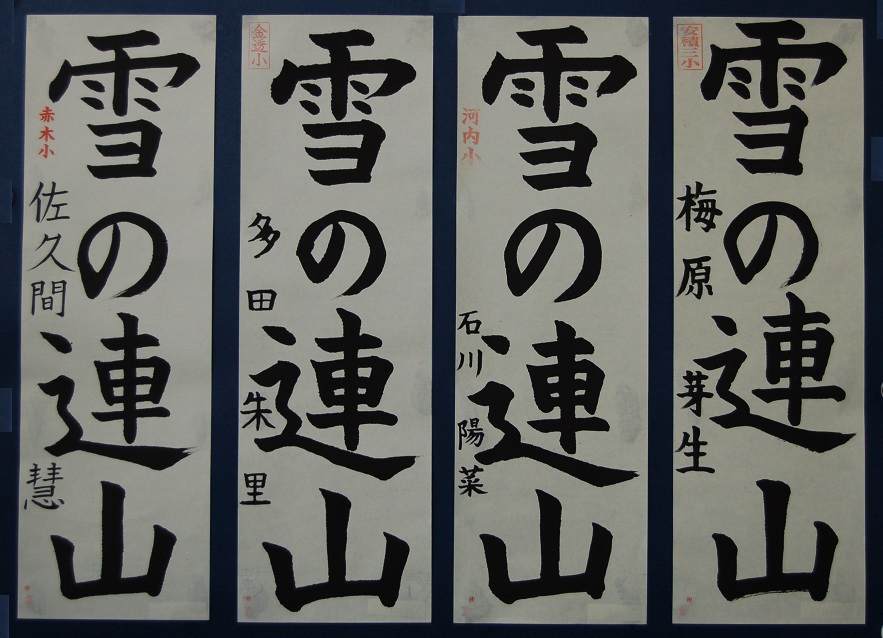 雪の連山
安積三小
梅原芽生
雪の連山
河内小
石川陽菜
雪の連山
金透小
多田朱里
雪の連山
赤木小
佐久間慧